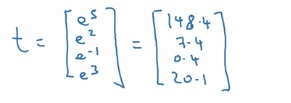 t = [e^5 e^2 e^-1 e^3] = [148.4 7.4 0.4 20.1]